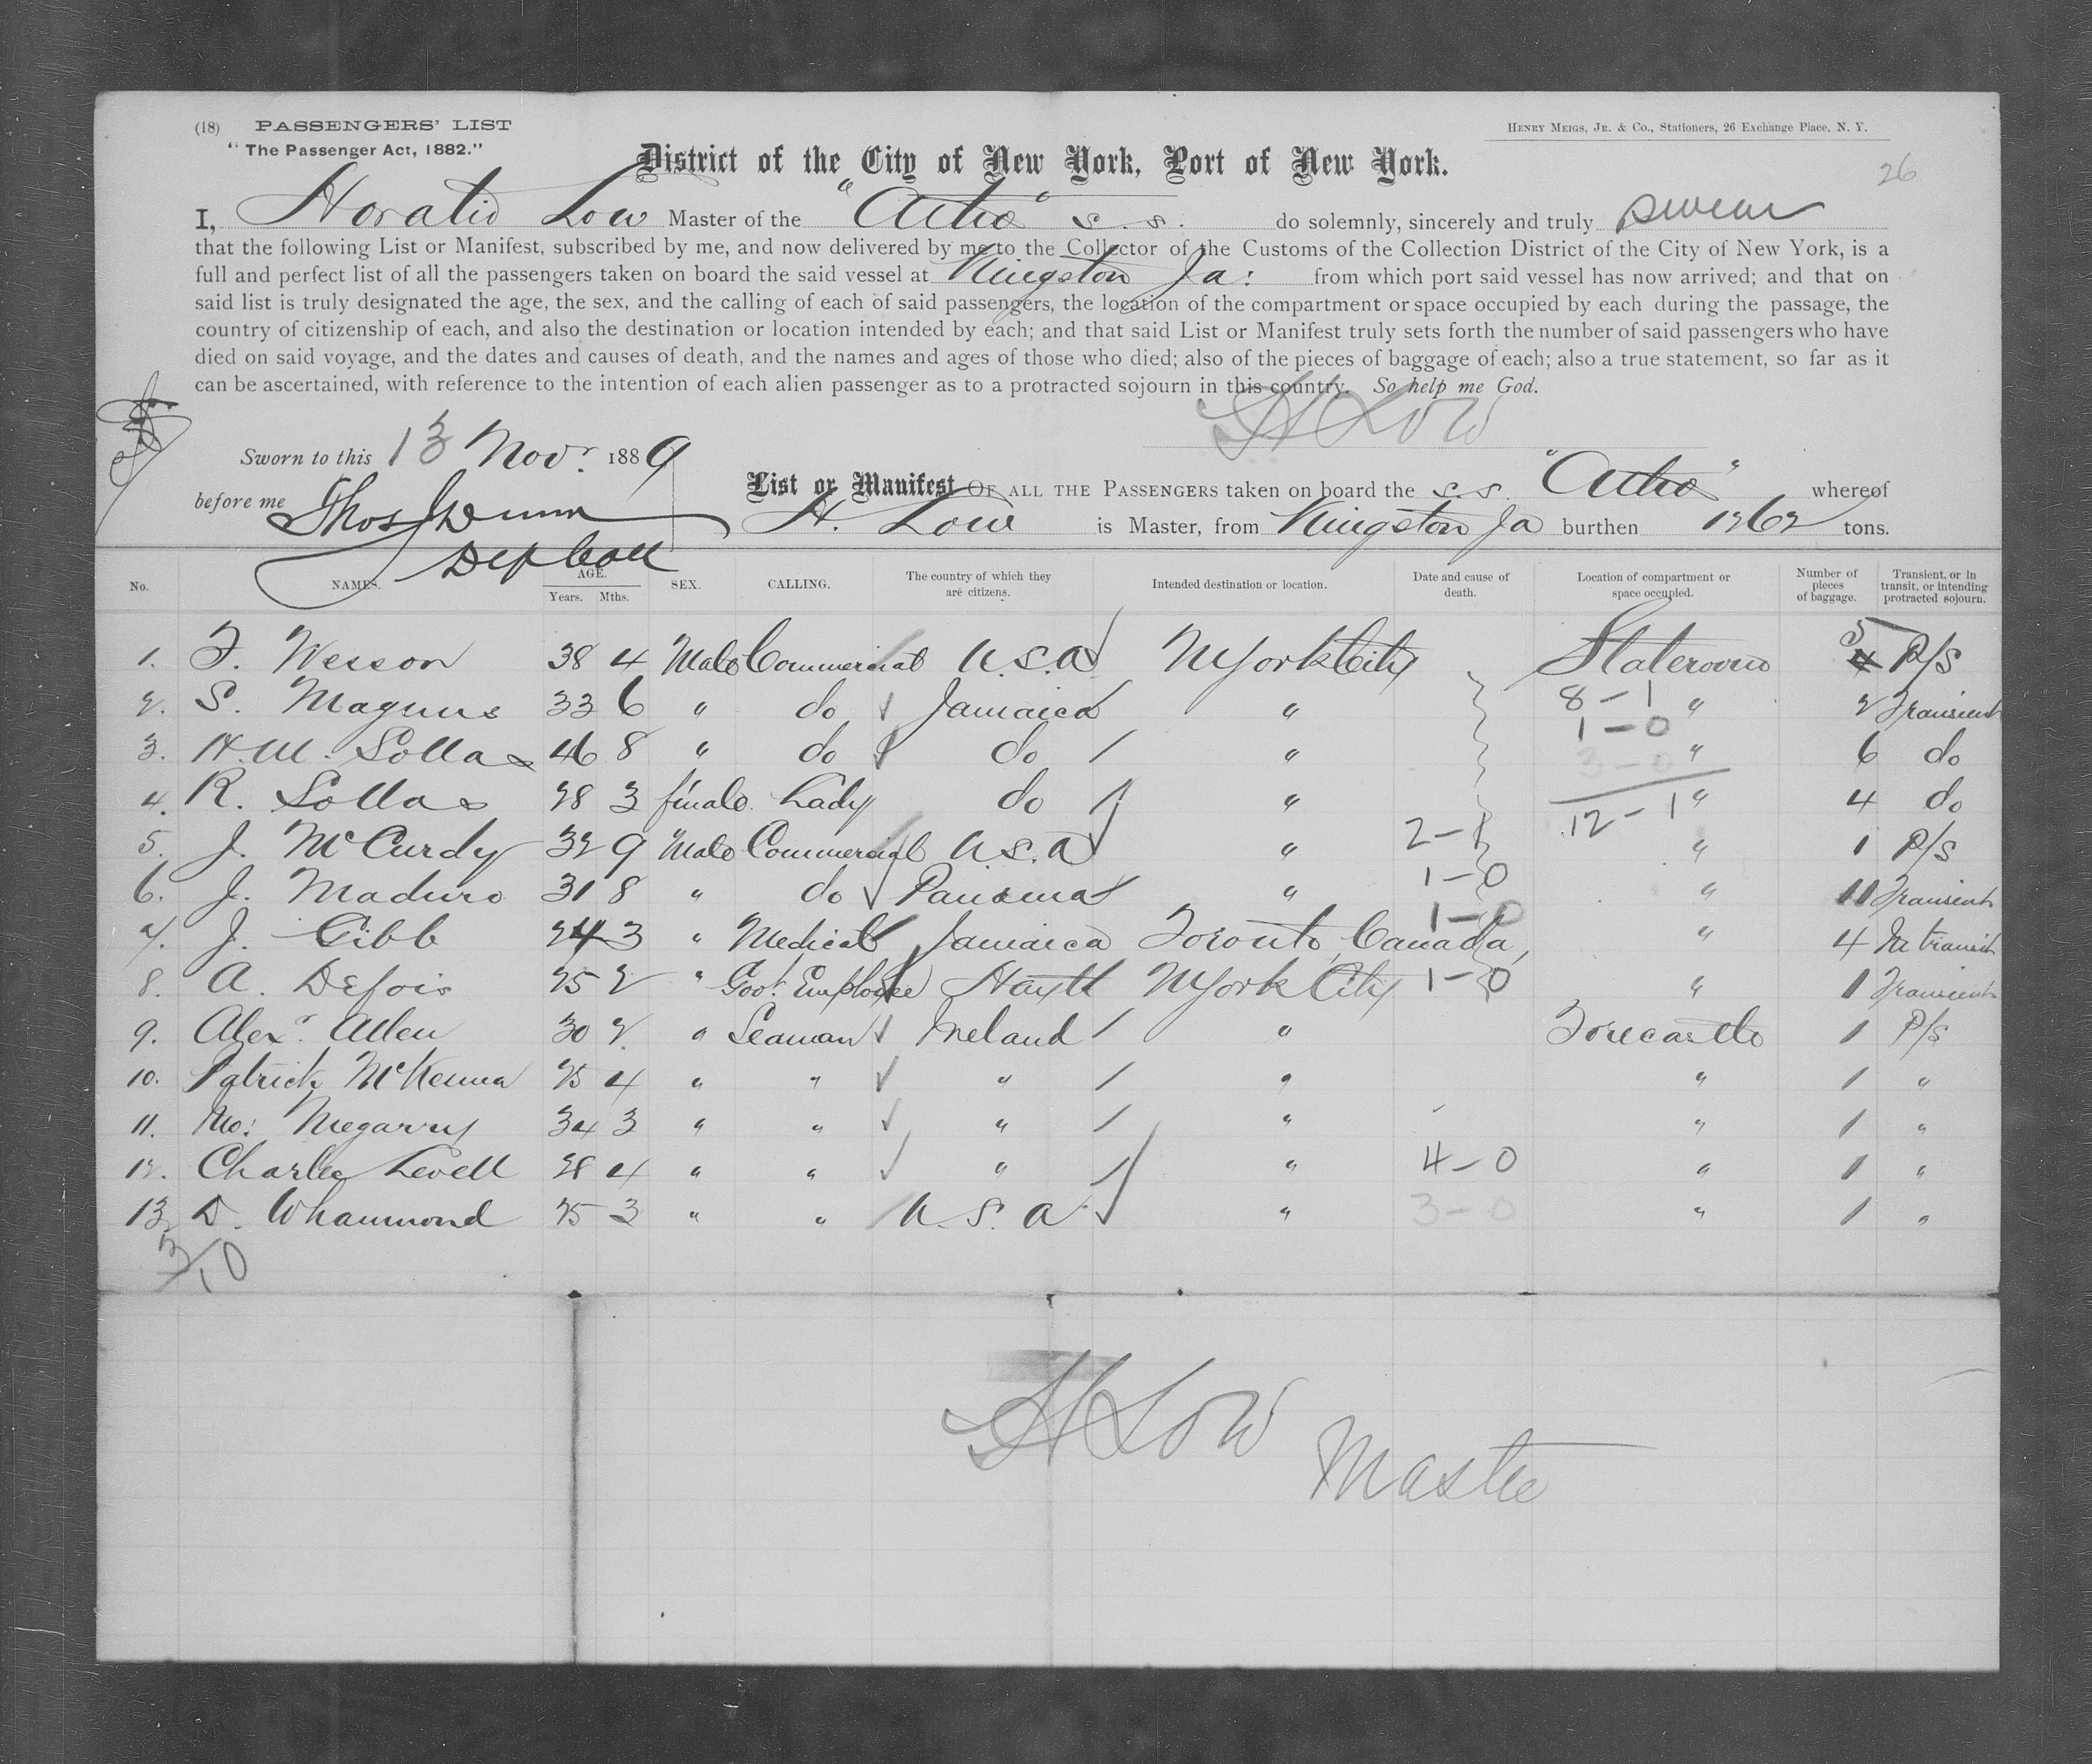 (18) PASSENGERS' LIST
"The Passenger Act, 1882."
HENRY MEIGS, JR. & CO., Stationers, 26 Exchange Place, N. Y.
District of the City of New York, Port of New York.
26
I, Horatio Low Master of the "Athos" s.s. do solemnly, sincerely and truly swear
that the following List or Manifest, subscribed by me, and now delivered by me to the Collector of the Customs of the Collection District of the City of New York, is a
full and perfect list of all the passengers taken on board the said vessel at Kingston Ja: from which port said vessel has now arrived; and that on
said list is truly designated the age, the sex, and the calling of each of said passengers, the location of the compartment or space occupied by each during the passage, the
country of citizenship of each, and also the destination or location intended by each; and that said List or Manifest truly sets forth the number of said passengers who have
died on said voyage, and the dates and causes of death, and the names and ages of those who died; also of the pieces of baggage of each; also a true statement, so far as it
can be ascertained, with reference to the intention of each alien passenger as to a protracted sojourn in this country. So help me God.
H Low
Sworn to this 13 Novr. 1889
before me Thos J Dunn
Dep Coll
List or Manifest OF ALL THE PASSENGERS taken on board the s.s. "Athos" whereof
H. Low is Master, from Kingston Ja burthen tons.
No. NAMES. AGE. Years. Mths. SEX. CALLING. The country of which they are citizens. Intended destination or location. Date and cause of death. Location of compartment or space occupied. Number of pieces of baggage. Transient, or in transit, or intending protracted sojourn.
1. F. Wesson 38 4 Male Commercial U.S.A NYork City Stateroom 5 P/S
2. S. Magnus 33 6 " do Jamaica " 8-1 " 2 Transient
1-0
3. H. M. Sollas 46 8 " do do " 3-0 " 6 do
4. R. Sollas 28 3 fmale Lady do " " 4 do
12-1
5. J. McCurdy 32 9 Male Commercial U.S.A " 2-1 " 1 P/S
6. J. Maduro 31 8 " do Panama " 1-0 " 11 Transient
7. J. Gibb 24 3 " Medical Jamaica Toronto, Canada, 1-0 " 4 In transit
8. A. 25 2 " Govt. Employee Hayti NYork City 1-0 " 1 Transient
9. Alexr. Allen 30 2 " Seaman Ireland " Forecastle 1 P/S
10. Patrick McKenna 25 4 " " " " " 1 "
11. Megarry 34 3 " " " " " 1 "
12. Charles Levell 28 4 " " " " 4-0 " 1 "
13. D. Whammond 25 3 " " U.S.A " 3-0 " 1 "
3/10
H Low
Master